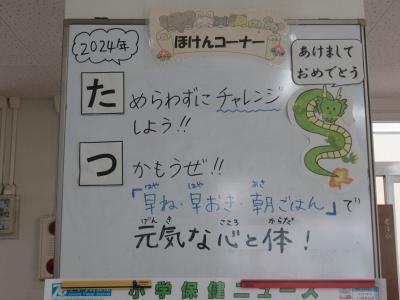 2024年
ほけんコーナー
あけまして
おめでとう
ためらわずにチャレンジ
しよう!!
つかもうぜ!!
「早ね・早おき・朝ごはん」で
はや はや あさ
元気な心と体!
げん き こころ からだ
小学保健ニュース